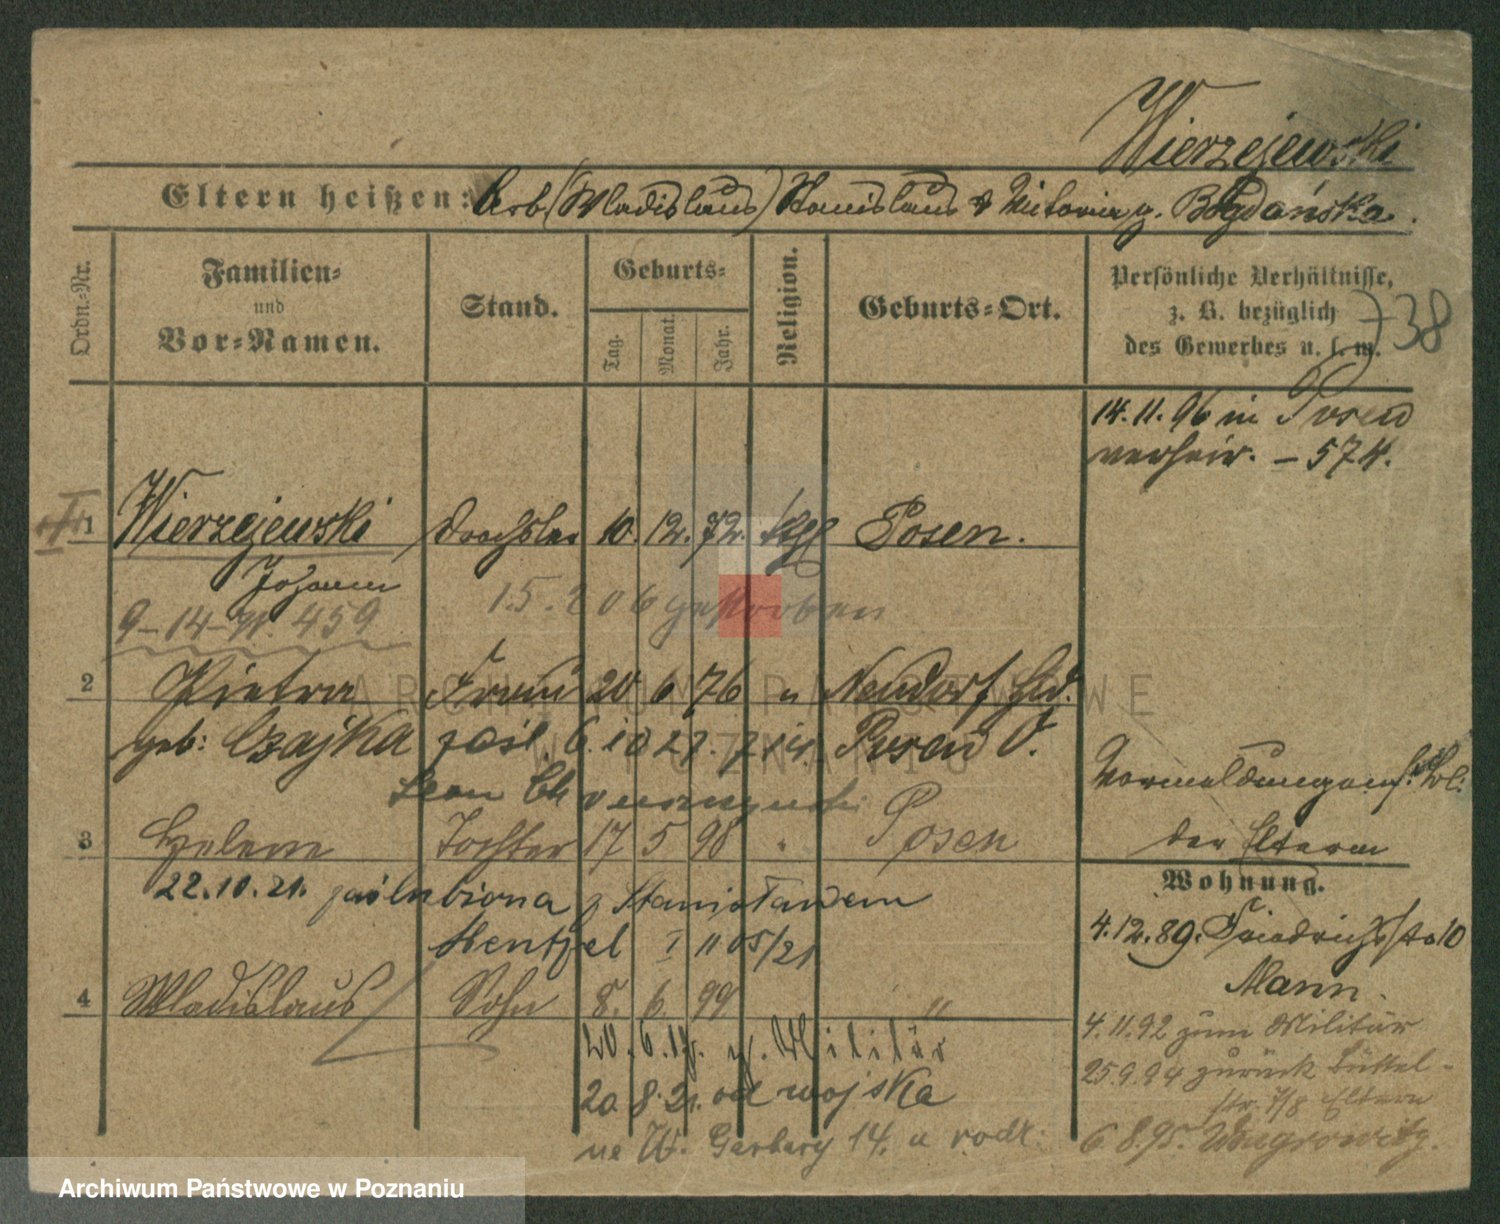 Wierzejewski
Eltern heißen: Arb. (Wladislaus) Stanislaus & Victoria g. Bogdańska.
Ordn.-Nr.
Familien-
und
Vor-Namen.
Stand.
Geburts-
Tag.
Monat.
Jahr.
Religion.
Geburts-Ort.
Persönliche Verhältnisse,
z. B. bezüglich
des Gewerbes u. s. w.
738
14.11.96 in Posen
verheir. – 574.
1 Wierzejewski Drechsler 10. 12. 72. kath Posen.
Johann
9–14– 459
15.2 06 gestorben
2 Pietra Frau 20 6 76 " Neudorf
geb: Czajka zaśl. 6.10 27. Posen O.
Leon
3 Helene Tochter 17 5 98 " Posen
22.10.21. zaślubiona z Stanisławem
Hentzel I 1105/21
4 Wladislaus Sohn 8. 6. 99 "
20.6.17. z. Militär
20.8.21. od wojska
ue W. Garbary 14. u rodz.
der Eltern
Wohnung.
4.12.89. Friedrichstr 10
Mann.
4.11.92 zum Militär
25.9.94 zurück Büttel-
str. 7/8 Eltern
6.8.95. Wongrowitz.
ARCHIWUM PAŃSTWOWE
W POZNANIU
Archiwum Państwowe w Poznaniu